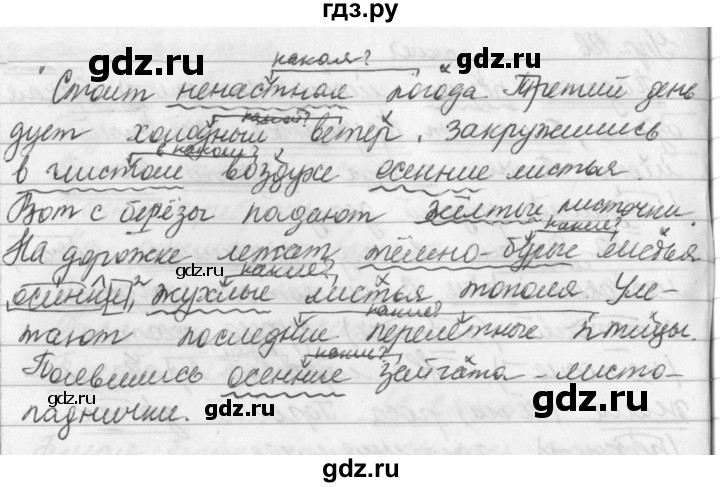 гдз.ру
какая?
Стоит ненастная погода. Третий день
какой?
дует холодный ветер, закружились
в каком?
в чистом воздухе осенние листья.
Вот с берёзы падают жёлтые листочки.
какие?
На дорожке лежат тёмно-бурые листья
gdz.ru
какие?
осинки, жухлые листья тополя. Уле-
какие?
тают последние перелётные птицы.
какие?
Появились осенние зайчата - листо-
паднички.
gdz.ru
gdz.ru
gdz.ru